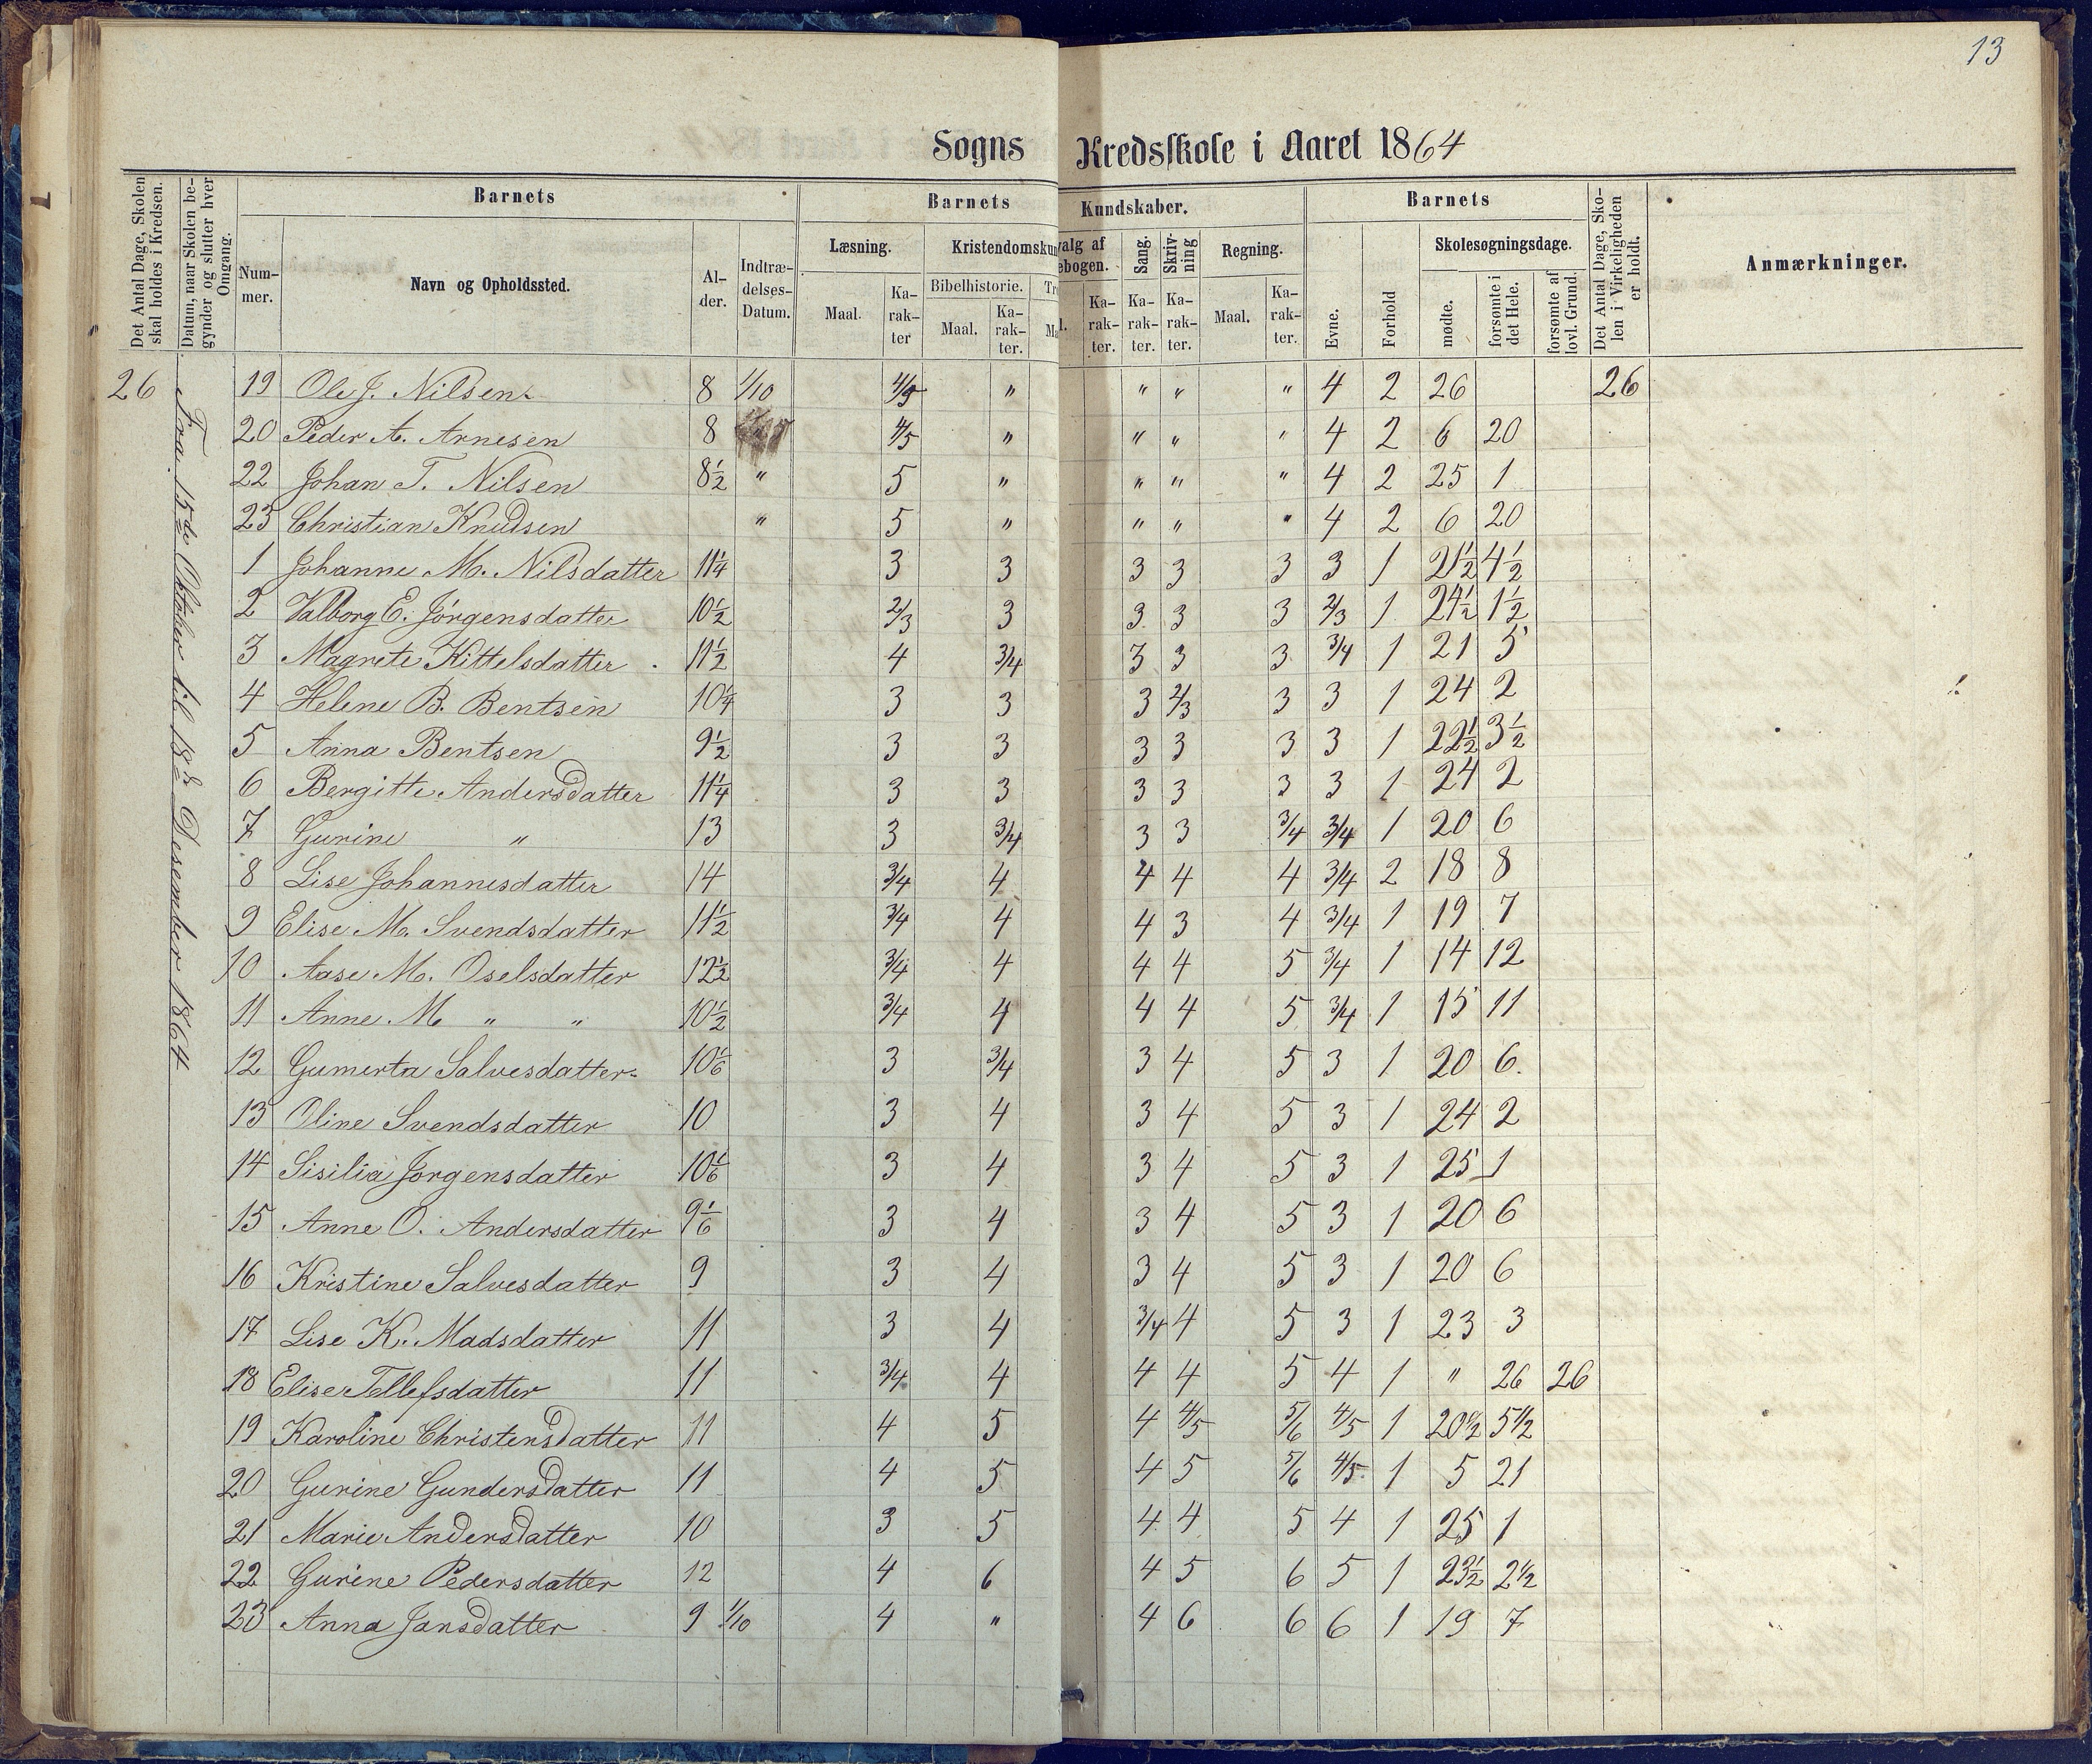 13
Sogns Kredsskole i Aaret 1864
Det Antal Dage, Skolen skal holdes i Kredsen.
Datum, naar Skolen begynder og slutter hver Omgang.
Barnets
Num-mer.
Navn og Opholdssted.
Al-der.
Indtræ-delses-Datum.
Barnets Kundskaber.
Læsning.
Maal.
Ka-rak-ter
Kristendomskun
Bibelhistorie.
Maal.
Ka-rak-ter.
Tr
Ma
valg af
ebogen.
l.
Ka-rak-ter.
Sang.
Ka-rak-ter.
Skriv-ning
Ka-rak-ter.
Regning.
Maal.
Ka-rak-ter.
Barnets
Evne.
Forhold
Skolesøgningsdage.
mødte.
forsømte i det Hele.
forsømte af lovl. Grund.
Det Antal Dage, Sko-len i Virkeligheden er holdt.
Anmærkninger.
Fra 15de Oktober til 18de Desember 1864
26 19 Ole J. Nilsen. 8 1/10 4/5 " " " " 4 2 26 26
20 Peder A. Arnesen 8 4/5 " " " " 4 2 6 20
22 Johan T. Nilsen 8½ " 5 " " " " 4 2 25 1
23 Christian Knudsen " 5 " " " " 4 2 6 20
1 Johanne M. Nilsdatter 11¼ 3 3 3 3 3 3 1 21½ 4½
2 Valborg E. Jørgensdatter 10½ 2/3 3 3 3 3 2/3 1 24½ 1½
3 Magrete Kittelsdatter . 11½ 4 3/4 3 3 3 3/4 1 21 5
4 Helene B. Bentsen 10¼ 3 3 3 2/3 3 3 1 24 2
5 Anna Bentsen 9½ 3 3 3 3 3 3 1 22½ 3½
6 Bergitte Andersdatter 11¼ 3 3 3 3 3 3 1 24 2
7 Gurine " 13 3 3/4 3 3 3/4 3/4 1 20 6
8 Lise Johannesdatter 14 3/4 4 4 4 4 3/4 2 18 8
9 Elise M. Svendsdatter 11½ 3/4 4 4 3 4 3/4 1 19 7
10 Aase M. Oselsdatter 12½ 3/4 4 4 4 5 3/4 1 14 12
11 Anne M " " 10½ 3/4 4 4 4 5 3/4 1 15 11
12 Gumerta Salvesdatter. 10 1/6 3 3/4 3 4 5 3 1 20 6.
13 Oline Svendsdatter 10 3 4 3 4 5 3 1 24 2
14 Sisilia Jørgensdatter 10 1/6 3 4 3 4 5 3 1 25 1
15 Anne O. Andersdatter 9 1/6 3 4 3 4 5 3 1 20 6
16 Kristine Salvesdatter 9 3 4 3 4 5 3 1 20 6
17 Lise K. Madsdatter 11 3 4 3/4 4 5 3 1 23 3
18 Elise Tellefsdatter 11 3/4 4 4 4 5 4 1 " 26 26
19 Karoline Christensdatter 11 4 5 4 4/5 5/6 4/5 1 20½ 5½
20 Gurine Gundersdatter 11 4 5 4 5 5/6 4/5. 1 5 21
21 Marie Andersdatter 10 3 5 4 4 5 4 1 25 1
22 Gurine Pedersdatter 12 4 6 4 5 6 5 1 23½ 2½
23 Anna Jansdatter 9 1/10 4 " 4 6 6 6 1 19 7